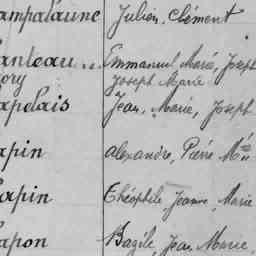 ampalaune Julien, Clément
anteau... Emmanuel Marie, Joseph
ory Joseph Marie
apelais Jean, Marie, Joseph
apin alexandre, Pierre Mie
apin Théophile, Jeanne, Marie
apon Bazile, Jean Marie,